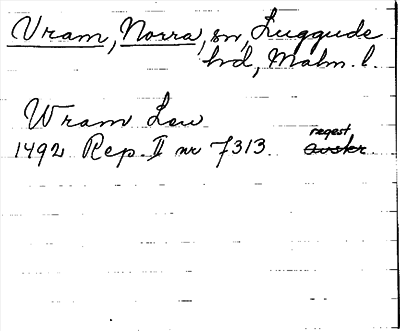 Vram, Norra, sn, Luggude
hd, Malm. l.
Wram Leu
regest
1492 Rep. II nr 7313 avskr.